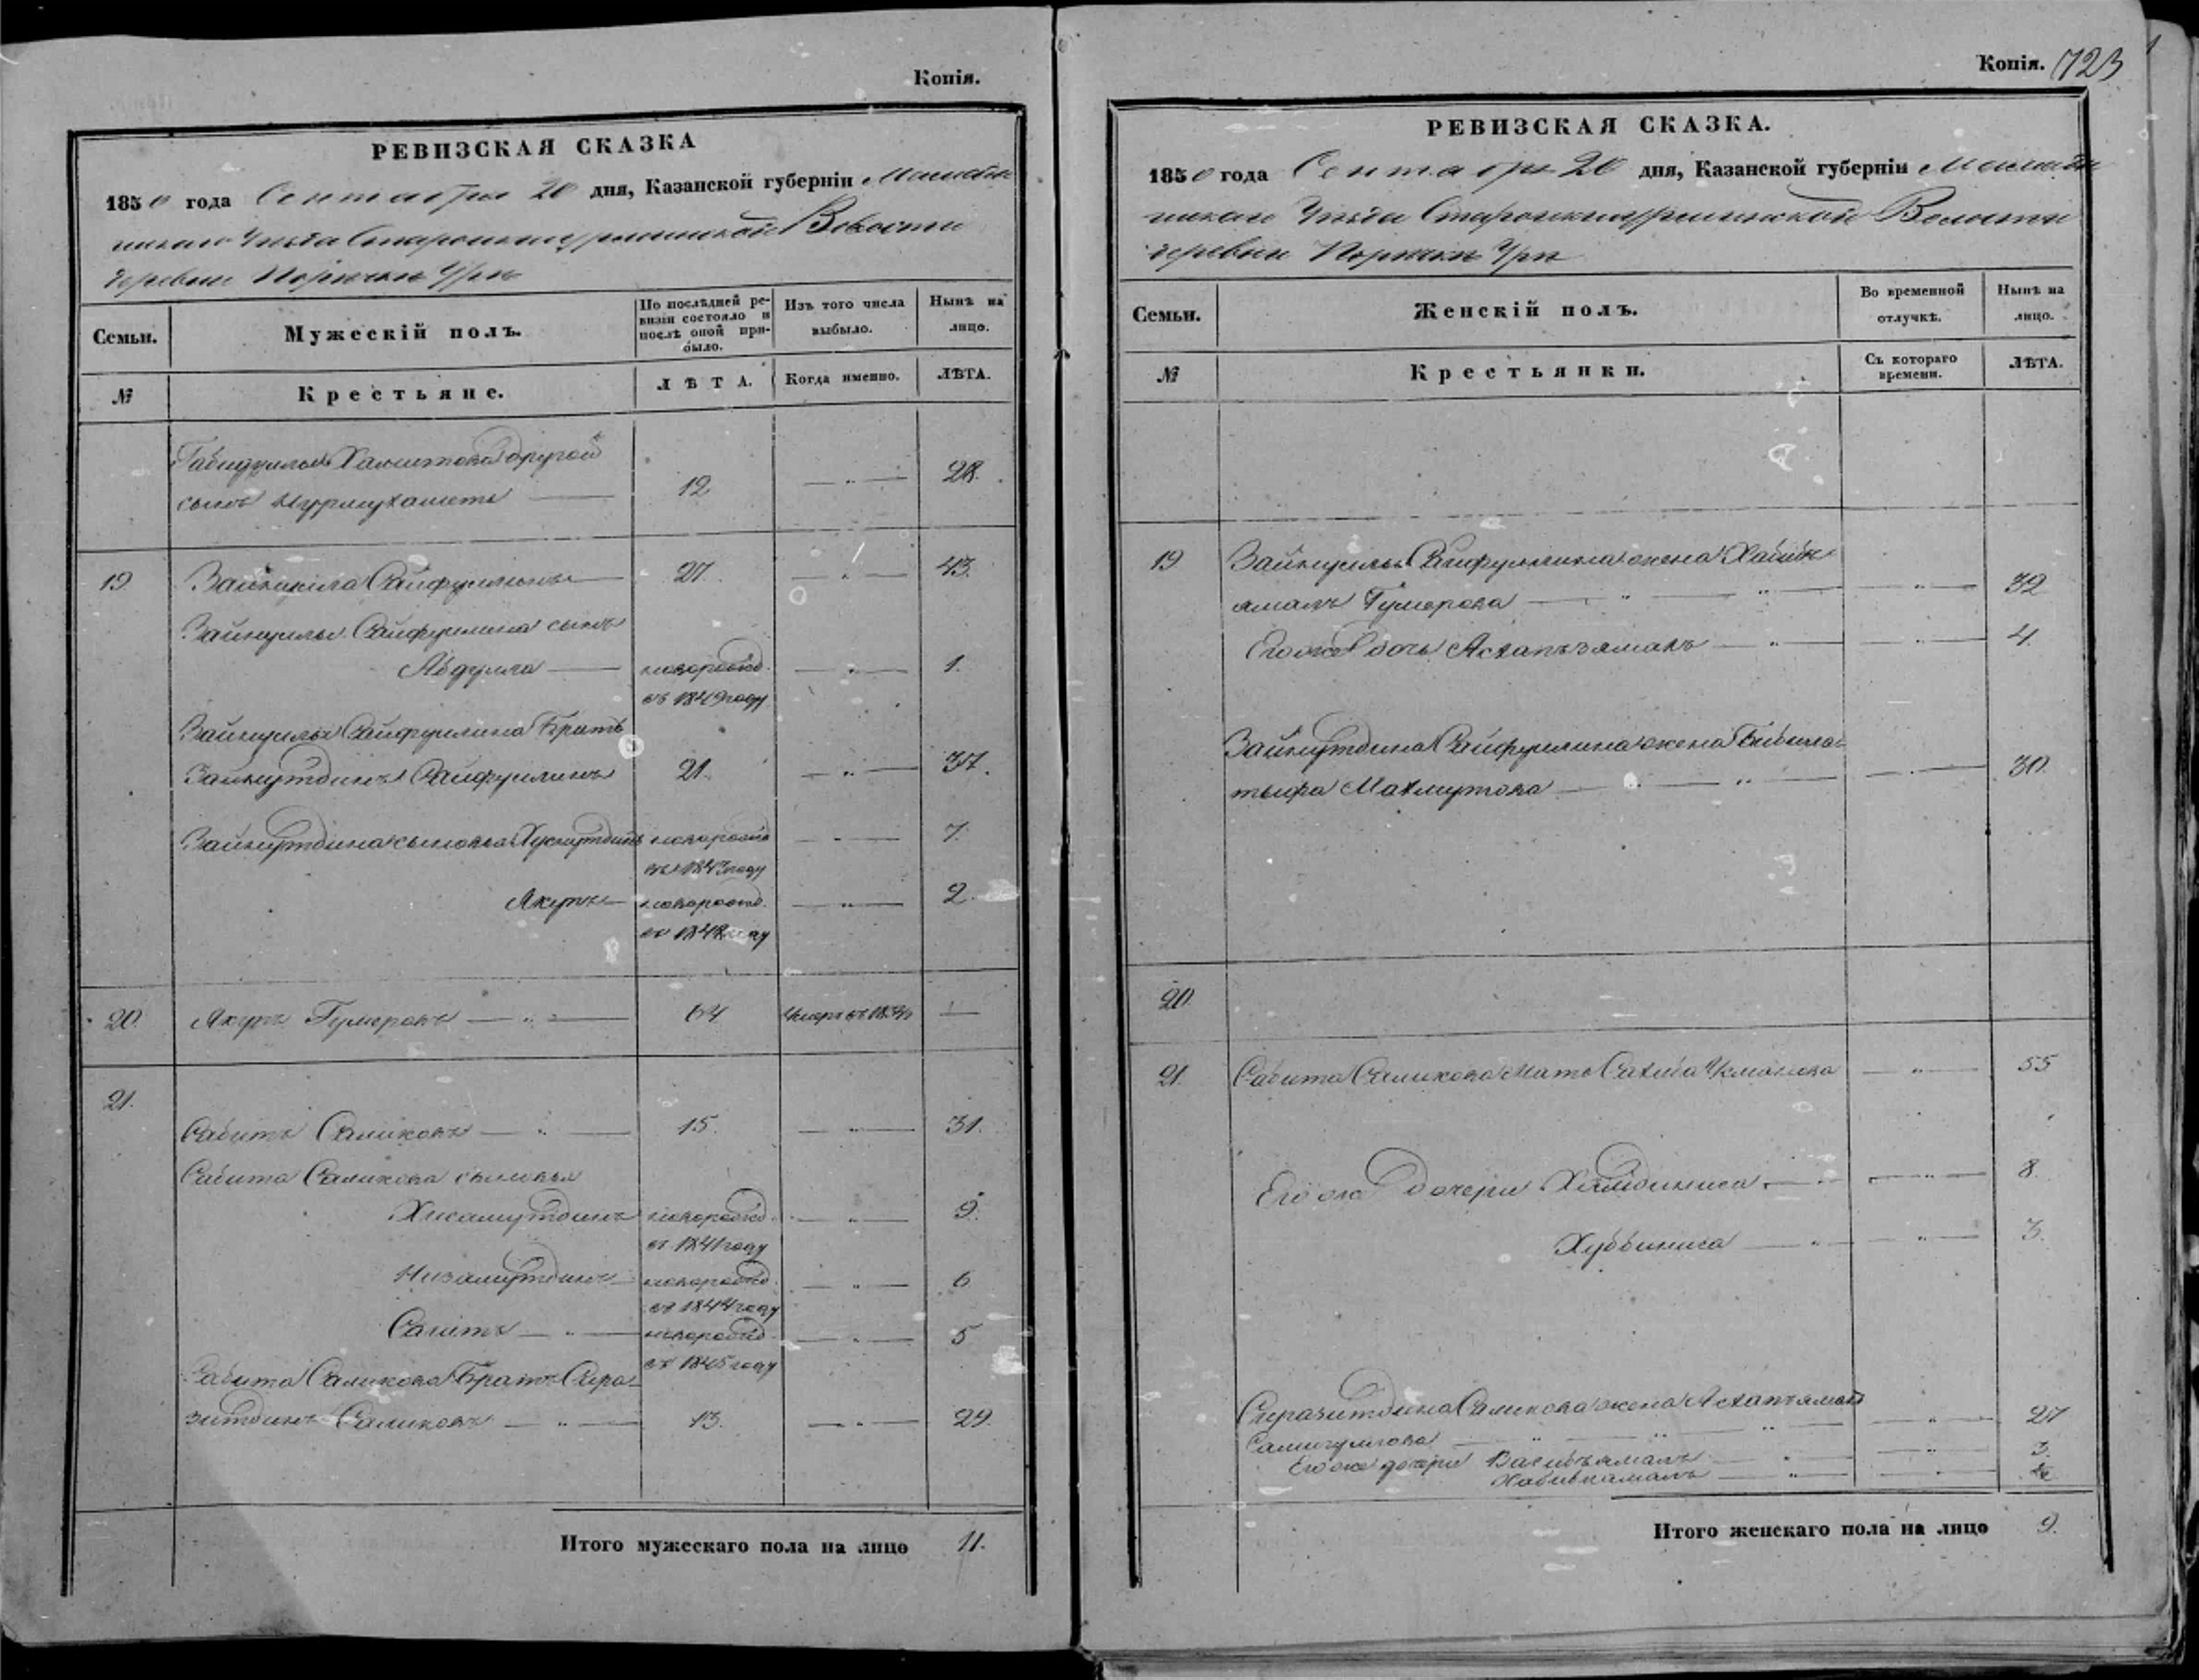 Копія.
РЕВИЗСКАЯ СКАЗКА
1850 года Сентября 20 дня, Казанской губерніи Мамады
шскаго Уезда Волости
деревни Порѣчки Ура
Семьи.
Мужескій полъ.
По послѣдней ре-
визіи состояло и
послѣ оной при-
было.
Изъ того числа
выбыло.
Нынѣ на
лицо.
№
Крестьяне.
ЛѢТА.
Когда именно.
ЛѢТА.
Габидуллы Хамитова другой
сынъ Нурмухаметъ 12 — „ — 28.
19 Сайфуллинъ 27. — „ — 43.
Зайнуллы Сайфуллина сынъ
Абдулла новорожд. — „ — 1.
въ 1849 году
Зайнуллы Сайфуллина братъ
Зайнутдинъ Сайфуллинъ 21. — „ — 37.
Зайнутдина сыновья Хуснутдинъ новорожд. — „ — 7.
въ 1843 году
Якупъ новорожд. — „ — 2.
въ 1848 году
20. Якупъ Гумеровъ — „ — 64 —
21.
Сабитъ Саликовъ — „ — 15. — „ — 31.
Сабита Саликова сыновья
Хисамутдинъ новорожд. — „ — 9.
въ 1841 году
Низамутдинъ новорожд. — „ — 6
въ 1844 году
Сагитъ — „ — новорожд. — „ — 5
въ 1845 году
Сабита Саликова братъ Сера-
зитдинъ Саликовъ — „ — 13. — „ — 29.
Итого мужескаго пола на лицо 11.
Копія. 723
РЕВИЗСКАЯ СКАЗКА.
1850 года Сентября 20 дня, Казанской губерніи Мамады
шскаго Уезда Волости
деревни Порѣчки Ура
Семьи.
Женскій полъ.
Во временной
отлучкѣ.
Нынѣ на
лицо.
№
Крестьянки.
Съ котораго
времени.
ЛѢТА.
19 Зайнуллы Сайфуллина жена Хабиб
ямалъ Гумерова — „ — „ — „ — 32
Его же дочь — „ — „ — 4.
Зайнутдина Сайфуллина жена Бибила-
тыфа Махмутова — „ — „ — 30.
20.
21. Сабита Саликова мать Сахиба Усманова — „ — 55
Его же дочери — „ — 8.
Хуббиниса — „ — „ — 3.
Серазитдина Саликова жена Асхапъямал
— „ — 27
Его же дочери — „ — 3.
Хабибкамалъ — „ —
Итого женскаго пола на лицо 9.